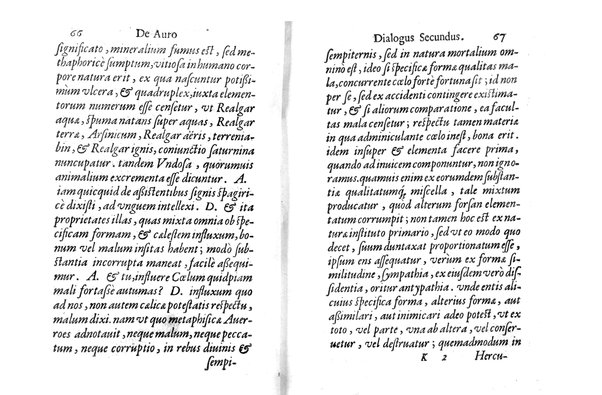 66 De Auro
significato, mineralium fumus est, sed me-
thaphoricè sumptum, vitiosa in humano cor-
pore natura erit, ex qua nascuntur potißi-
mum vlcera, & quadruplex, iuxta elemen-
torum numerum esse censetur, vt Realgar
aquæ, spuma natans super aquas, Realgar
terræ, Arsinicum, Realgar aëris, terrenia-
bin, & Realgar ignis, coniunctio saturnina
nuncupatur. tandem Vndosa, quorumuis
animalium excrementa esse dicuntur. A.
iam quicquid de aßistentibus signis spagiri-
cè dixisti, ad vnguem intellexi. D. & ita
proprietates illas, quas mixta omnia ob spe-
cificam formam, & cælestem influxum, bo-
num vel malum insitas habent; modò sub-
stantia incorrupta maneat, facilè assequi-
mur. A. & tu, influere Cælum quidpiam
mali fortasse autumas? D. influxum quo
ad nos, non autem calicæ potestatis respectu,
malum dixi. nam vt quo metaphisicæ Auer-
roes adnotauit, neque malum, neque pecca-
tum, neque corruptio, in rebus diuinis &
sempi-
Dialogus Secundus. 67
sempiternis, sed in natura mortalium om-
nino est, ideo si specificæ formæ qualitas ma-
la, concurrente cælo fortè fortunatis; id non
per se, sed ex accidenti contingere existima-
tur, & si aliorum comparatione, ea facul-
tas mala censetur; respectu tamen materiæ
in qua adminiculante cælo inest, bona erit.
idem insuper & elementa facere prima,
quando adinuicem componuntur, non igno-
ramus. quamuis enim ex eorumdem substan-
tia qualitatumq́; miscella, tale mixtum
producatur, quod alterum forsan elemen-
tum corrumpit; non tamen hoc est ex natu-
ræ instituto primario, sed vt eo modo quo
decet, suum duntaxat proportionatum esse,
ipsum ens assequatur, verùm ex formæ si-
militudine, sympathia, ex eiusdem verò dis-
sidentia, oritur antypathia. vnde entis ali-
cuius specifica forma, alterius formæ, aut
assimilari, aut inimicari adeo potest, vt ex
toto, vel parte, vna ab altera, vel conser-
uetur, vel destruatur; quemadmodum in
K 2 Hercu-